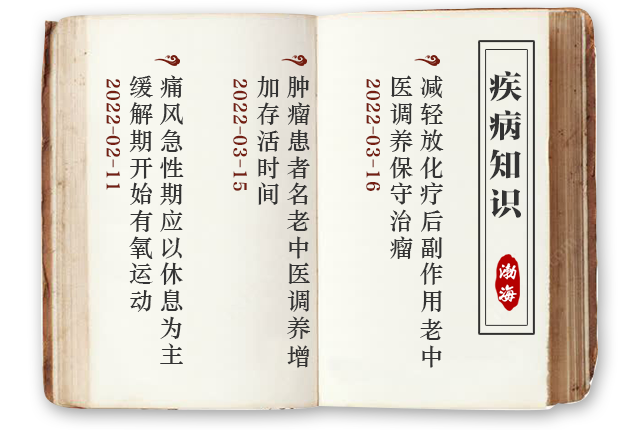 疾病知识
渤海
减轻放化疗后副作用老中
医调养保守治瘤
2022-03-16
肿瘤患者名老中医调养增
加存活时间
2022-03-15
痛风急性期应以休息为主
缓解期开始有氧运动
2022-02-11